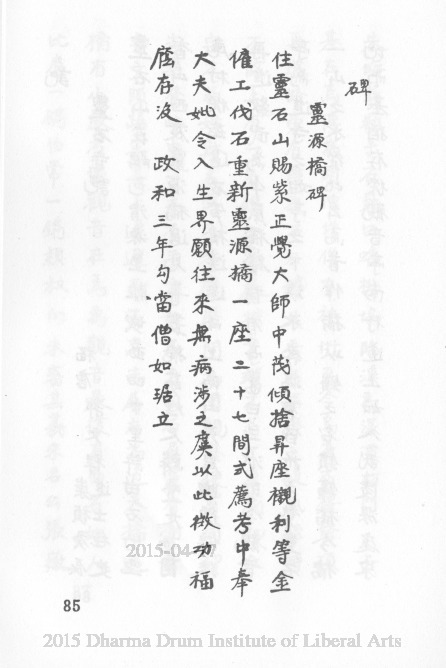 碑
靈源橋碑
住靈石山賜紫正覺大師中茂傾捨昇座襯利等金
僱工伐石重新靈源橋一座二十七間式薦考中奉
大夫妣令人生界願往來無病涉之虞以此微功福
存沒 政和三年勾當僧如琚立
85
2015-04-17
2015 Dharma Drum Institute of Liberal Arts